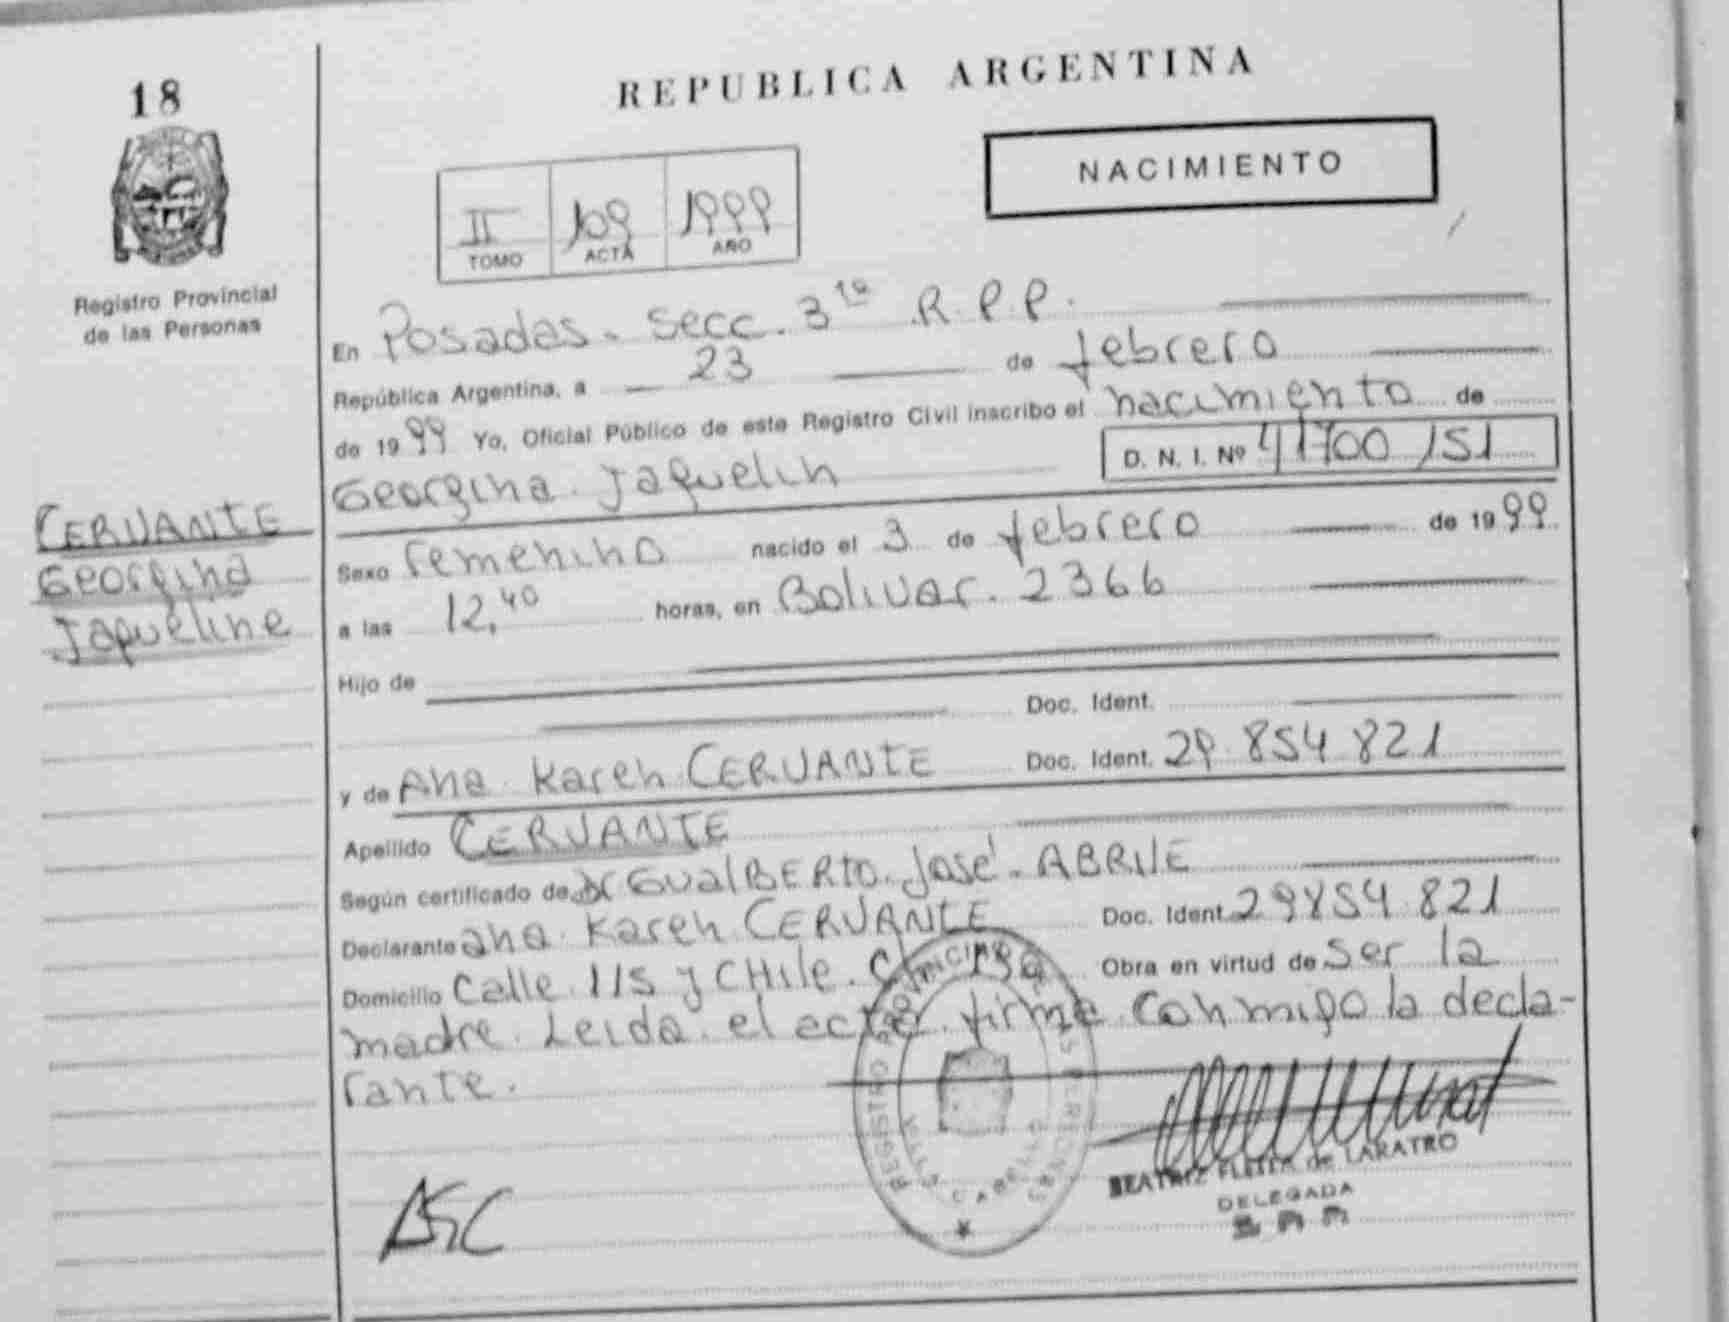 18
REPUBLICA ARGENTINA
NACIMIENTO
II 109 1999
TOMO ACTA AÑO
Registro Provincial
de las Personas
En Posadas. Secc. 3ra R.P.P.
República Argentina, a 23 de febrero
de 1999 Yo, Oficial Público de este Registro Civil inscribo el nacimiento de
Georgina Jaquelin D. N. I. Nº 41700 151
CERVANTE
Georgina
Jaqueline
Sexo femenino nacido el 3 de febrero de 1999
a las 12,40 horas, en Bolivar. 2366
Hijo de
Doc. Ident.
y de Ana Karen CERVANTE Doc. Ident. 29.854.821
Apellido CERVANTE
Según certificado de Gualberto. José. ABRILE
Declarante Ana Karen CERVANTE Doc. Ident. 29854.821
Domicilio Calle 115 y CHile. Obra en virtud de Ser la
madre. Leida el acta firma conmigo la decla-
rante.
REGISTRO PROVINCIAL DE LAS PERSONAS
VILLA CABELLO
BEATRIZ FLEITA de LARATRO
DELEGADA